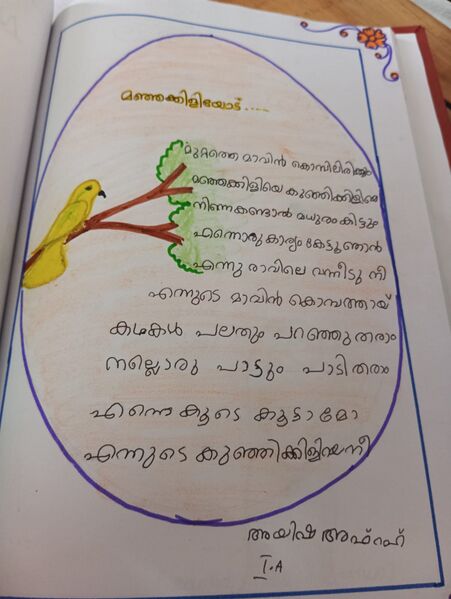 മഞ്ഞക്കിളിയോട്....
മുറ്റത്തെ മാവിൻ കൊമ്പിലിരിക്കും
മഞ്ഞക്കിളിയെ കുഞ്ഞിക്കിളിയെ
നിന്നകണ്ടാൽ മധുരം കിട്ടും
എന്നൊരു കാര്യം കേട്ടൂ ഞാൻ
എന്നു രാവിലെ വന്നീടു നീ
എന്നുടെ മാവിൻ കൊമ്പത്തായ്
കഥകൾ പലതും പറഞ്ഞു തരാം
നല്ലൊരു പാട്ടും പാടി തരാം
എന്നെ കൂടെ കൂട്ടാമോ
എന്നുടെ കുഞ്ഞിക്കിളിയേനീ
അയിഷ അഫ്റഹ്
I.A